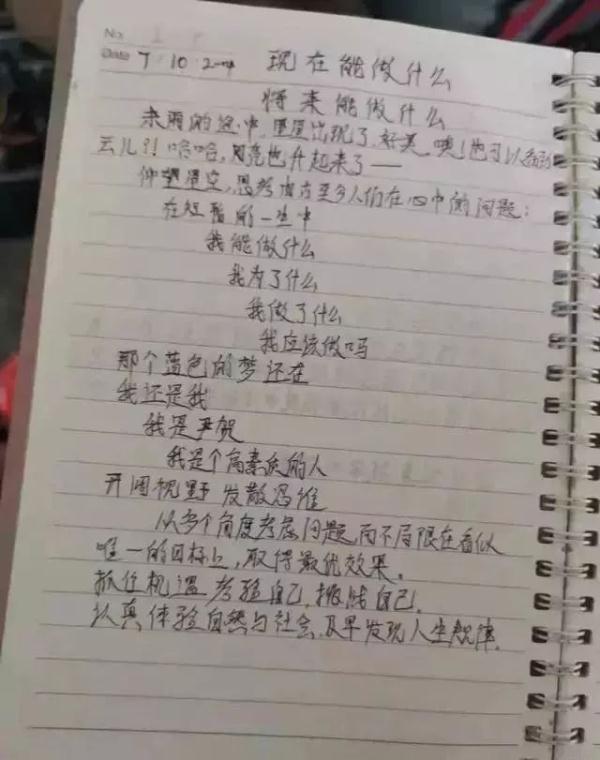 No.
Date 7 10 2004 现在能做什么
将来能做什么
来雨的途中,星星出现了,好美,噢!也可以看到
云儿?!哈哈,月亮也升起来了——
仰望星空,思考 至今人们在心中的问题:
在短暂的一生中
我能做什么
我为了什么
我做了什么
我应该做吗
那个蓝色的梦还在
我还是我
我是尹贺
我是个高素质的人
开阔视野 发散思维
从多个角度考虑问题,而不局限在看似
唯一的目标上,取得最优效果。
抓住机遇 考验自己,挑战自己。
认真体验自然与社会,及早发现人生规律。